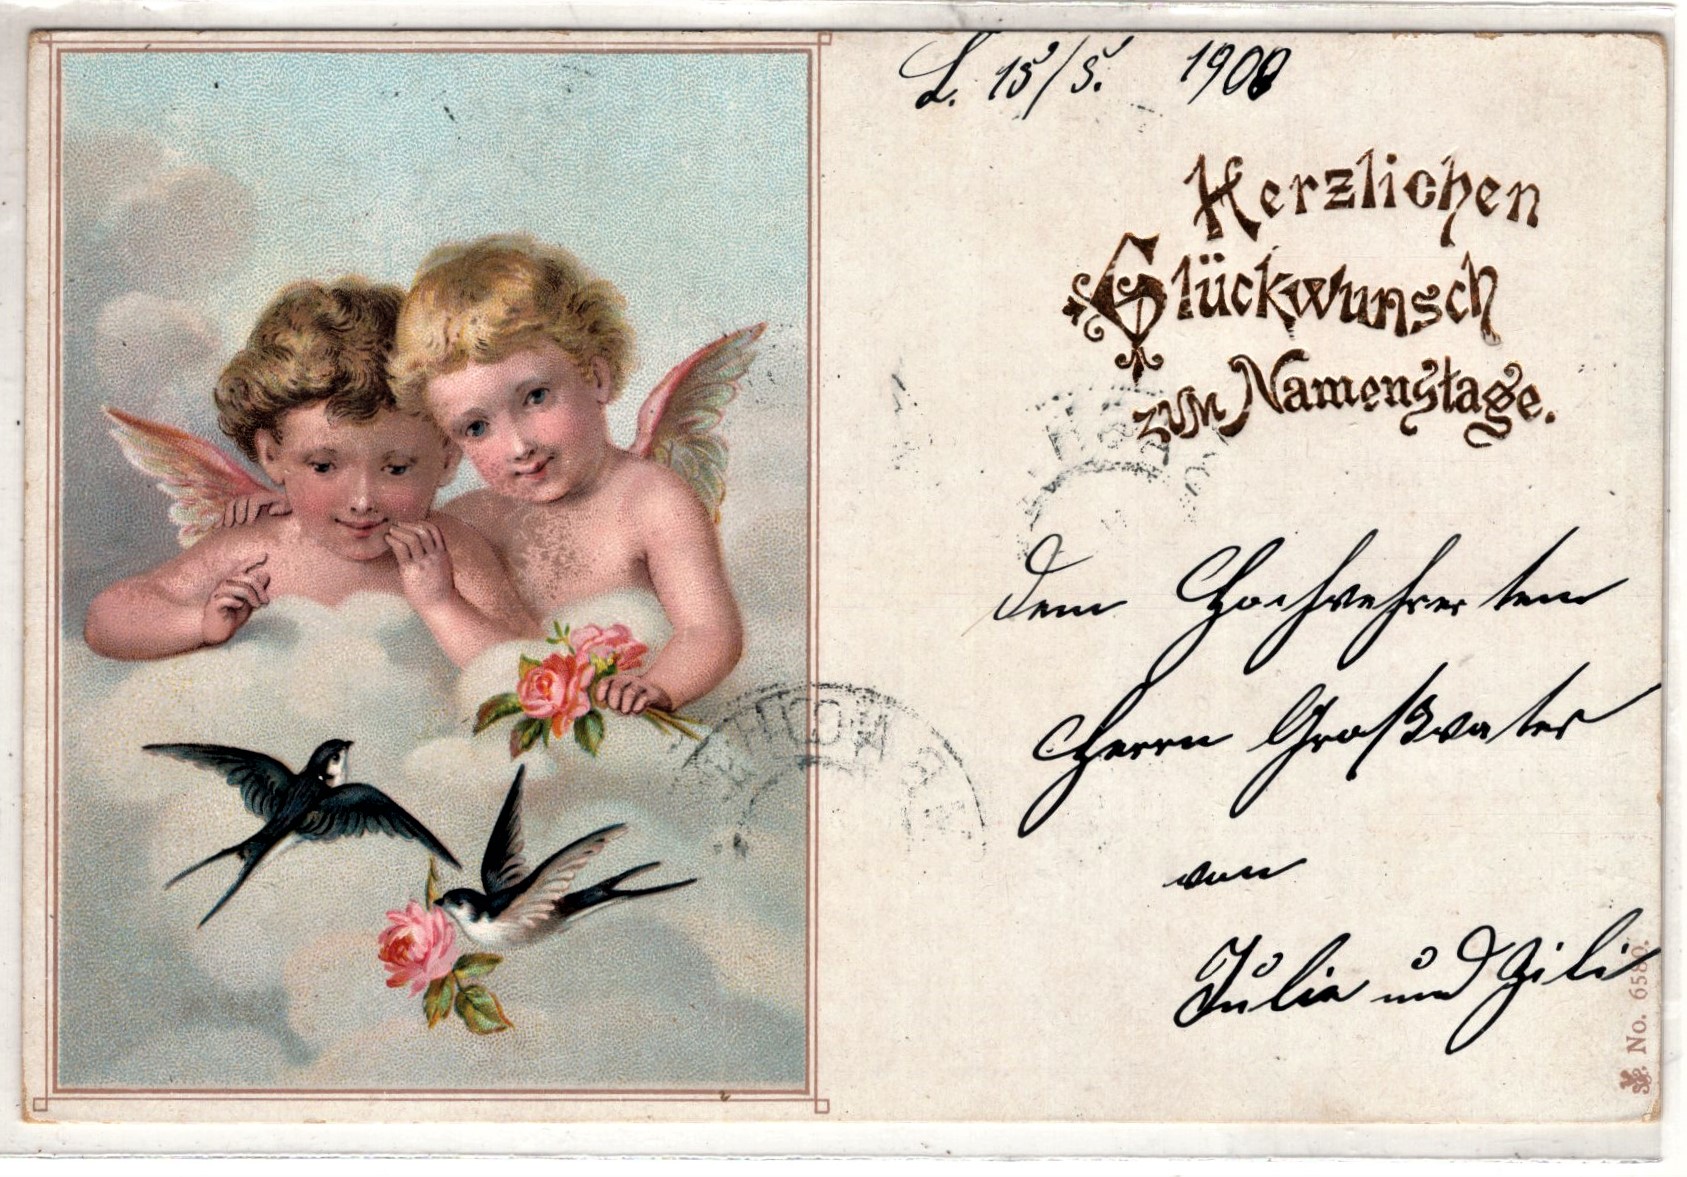 L. 15/5. 1900
Herzlichen
Glückwunsch
zum Namenstage.
Dem Hochverehrten
Herrn Großvater
von
Julie und Zili
No. 6580.